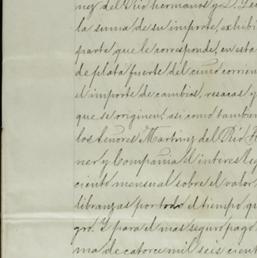 nez del Rio hermanos y D. Le
la suma de su importe, exhibi
parte que le corresponde, en esta
de plata fuerte del cuño corrien
el importe de cambios, resacas y
que se originen, asi como tambien
los Señores Martinez del Rio H
ner y Compañia el interes leg
ciento mensual sobre el valor
libranzas por todo el tiempo qu
gro. Y para el mas seguro pago
ma de catorce mil seis cient